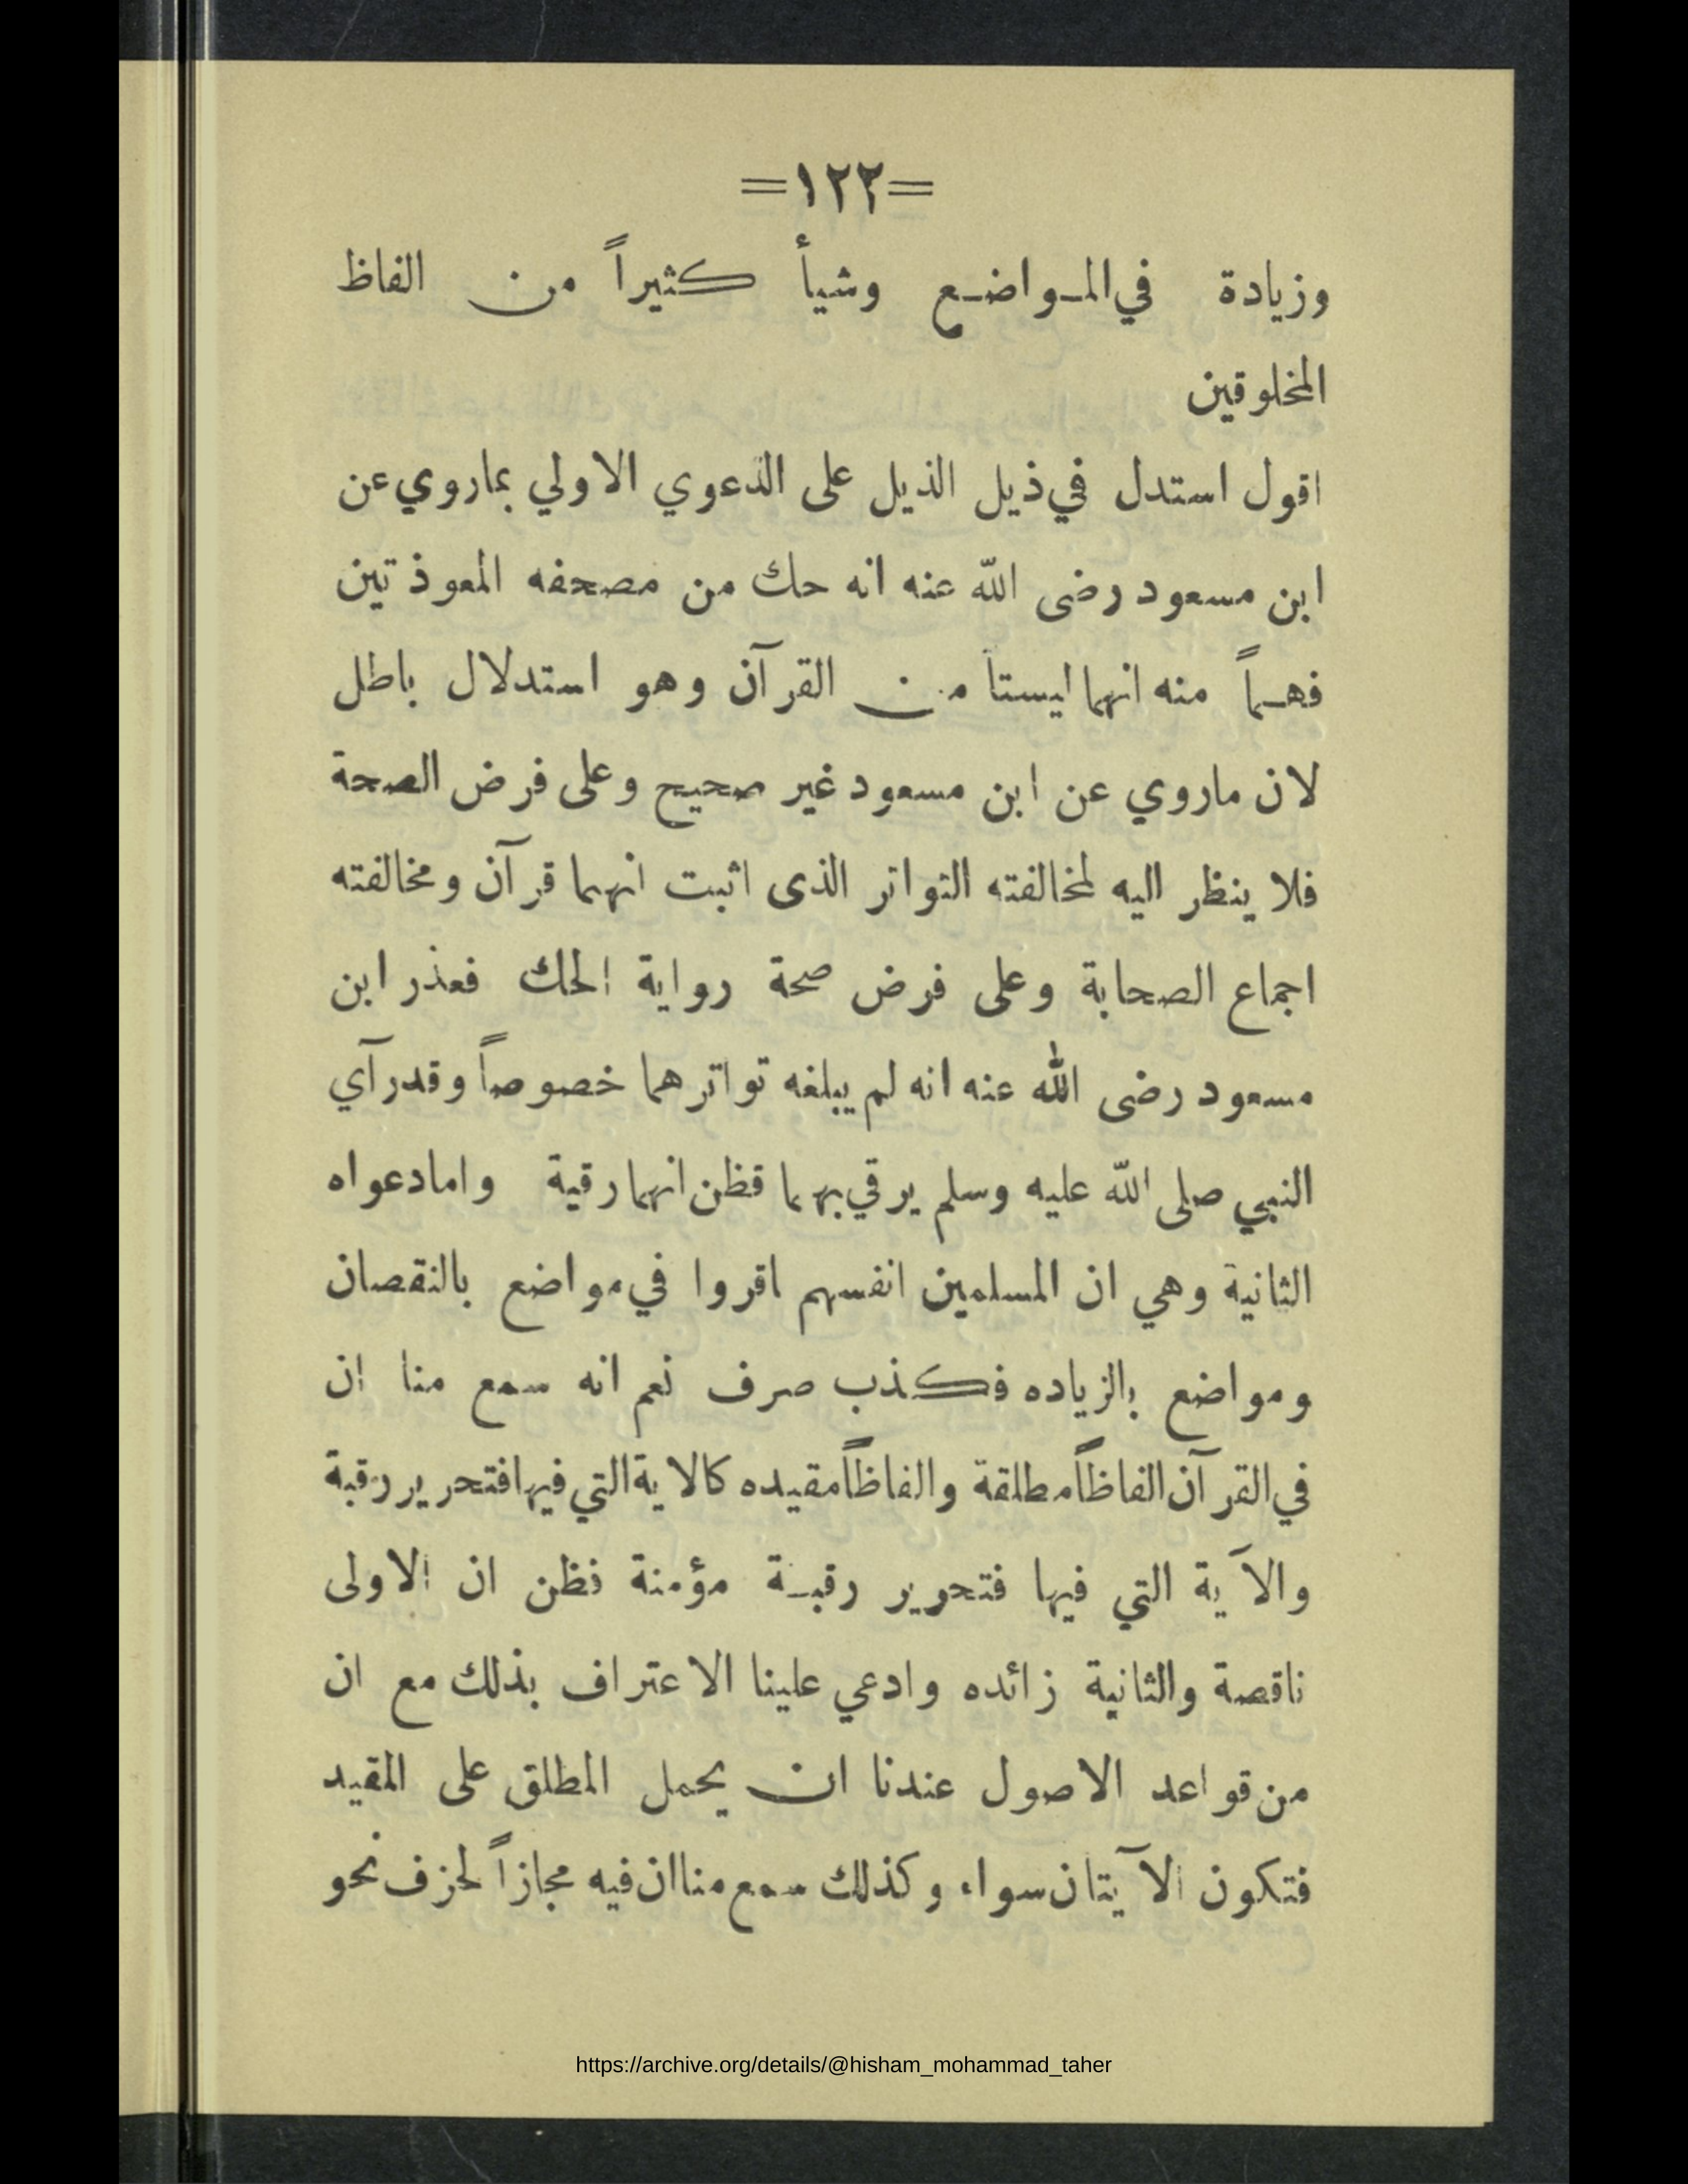 =١٢٢=
وزيادة في المواضع وشيأ كثيراً من الفاظ
المخلوقين
اقول استدل في ذيل الذيل على الدعوي الاولي بماروي عن
ابن مسعود رضى الله عنه انه حك من مصحفه المعوذتين
فهماً منه انهما ليستا من القرآن وهو استدلال باطل
لان ماروي عن ابن مسعود غير صحيح وعلى فرض الصحة
فلا ينظر اليه لمخالفته التواتر الذى اثبت انهما قرآن ومخالفته
اجماع الصحابة وعلى فرض صحة رواية الحك فعذر ابن
مسعود رضى الله عنه انه لم يبلغه تواترهما خصوصاً وقدرآي
النبي صلى الله عليه وسلم يرقي بهما قظن انهما رقية وامادعواه
الثانية وهي ان المسلمين انفسهم اقروا في مواضع بالنقصان
ومواضع بالزياده فكذب صرف نعم انه سمع منا ان
في القرآن الفاظاً مطلقة والفاظاً مقيده كالاية التي فيها فتحرير رقبة
والآية التي فيها فتحرير رقبة مؤمنة فظن ان الاولى
ناقصة والثانية زائده وادعي علينا الاعتراف بذلك مع ان
من قواعد الاصول عندنا ان يحمل المطلق على المقيد
فتكون الآيتان سواء وكذلك سمع منا ان فيه مجازاً لحزف نحو
https://archive.org/details/@hisham_mohammad_taher